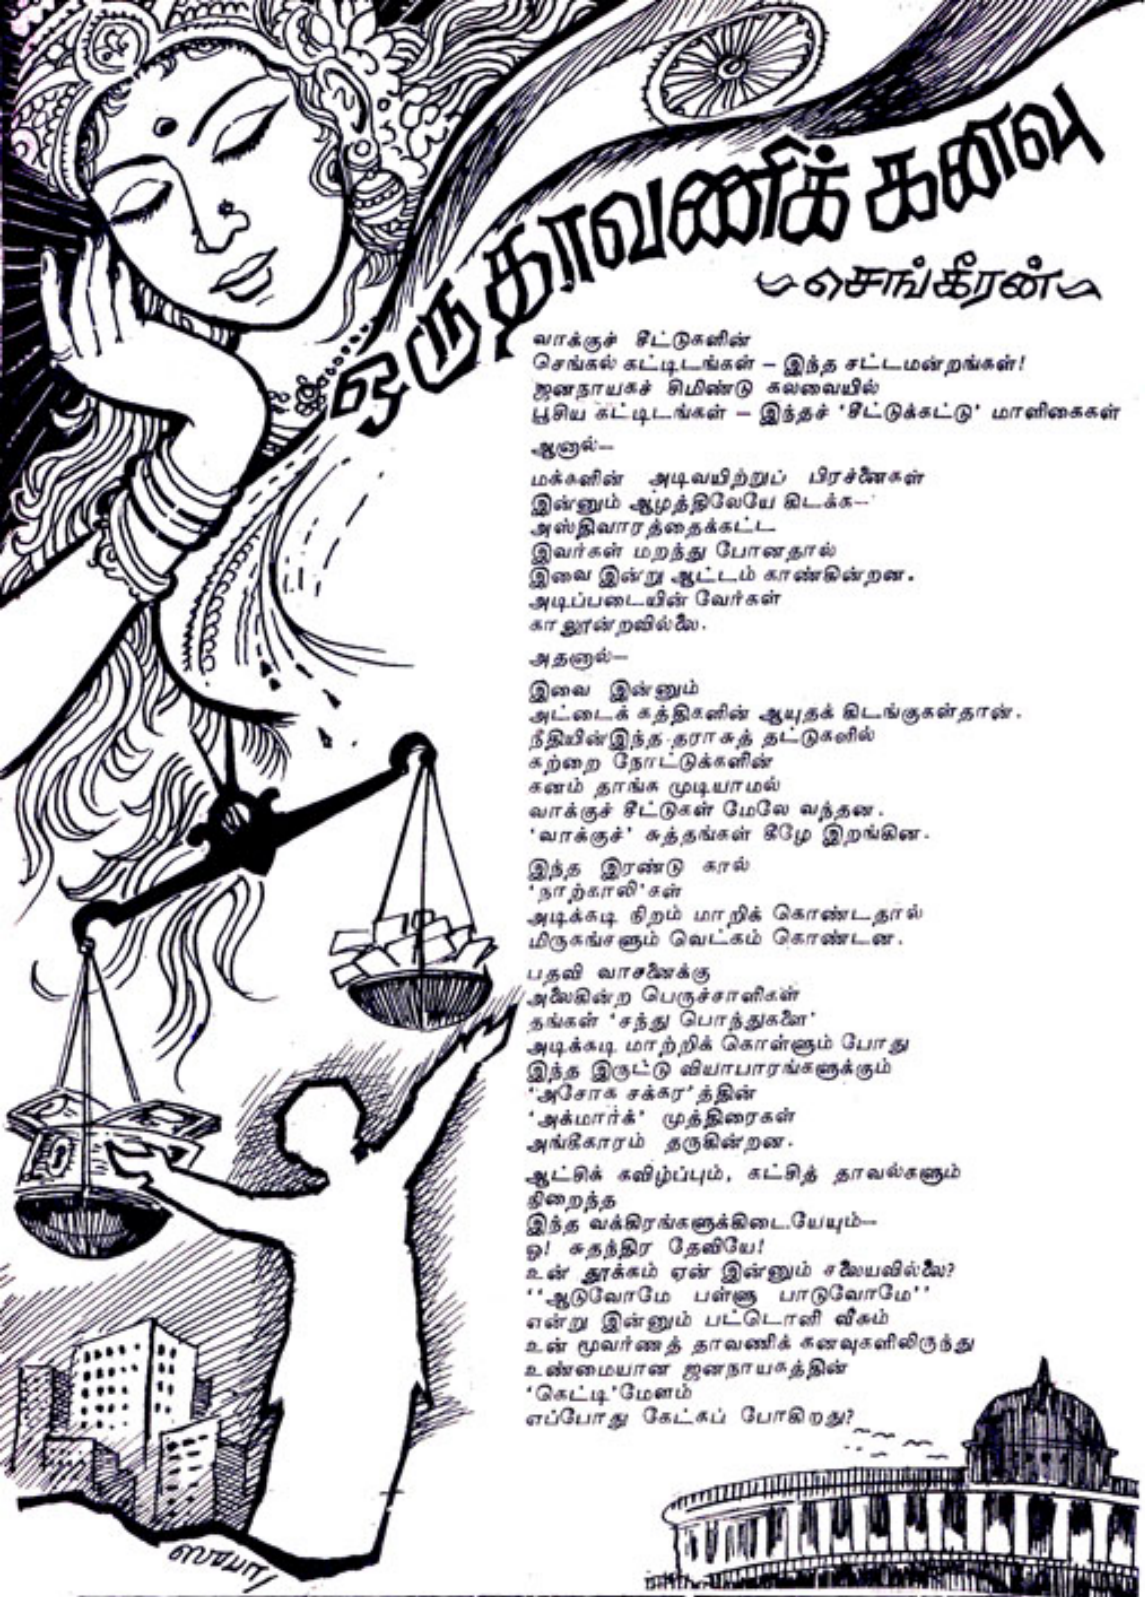 ஒரு தாவணிக் கனவு
செங்கீரன்
வாக்குச் சீட்டுகளின்
செங்கல் கட்டிடங்கள் – இந்த சட்டமன்றங்கள்!
ஜனநாயகச் சிமிண்டு கலவையில்
பூசிய கட்டிடங்கள் – இந்தச் 'சீட்டுக்கட்டு' மாளிகைகள்
ஆனால்–
மக்களின் அடிவயிற்றுப் பிரச்னைகள்
இன்னும் ஆழத்திலேயே கிடக்க–
அஸ்திவாரத்தைக்கட்ட
இவர்கள் மறந்து போனதால்
இவை இன்று ஆட்டம் காண்கின்றன.
அடிப்படையின் வேர்கள்
காலூன்றவில்லை.
அதனால்–
இவை இன்னும்
அட்டைக் கத்திகளின் ஆயுதக் கிடங்குகள்தான்.
நீதியின் இந்த தராசுத் தட்டுகளில்
கற்றை நோட்டுக்களின்
கனம் தாங்க முடியாமல்
வாக்குச் சீட்டுகள் மேலே வந்தன.
'வாக்குச்' சுத்தங்கள் கீழே இறங்கின.
இந்த இரண்டு கால்
'நாற்காலி'கள்
அடிக்கடி நிறம் மாறிக் கொண்டதால்
மிருகங்களும் வெட்கம் கொண்டன.
பதவி வாசனைக்கு
அலைகின்ற பெருச்சாளிகள்
தங்கள் 'சந்து பொந்துகளை'
அடிக்கடி மாற்றிக் கொள்ளும் போது
இந்த இருட்டு வியாபாரங்களுக்கும்
'அசோக சக்கர'த்தின்
'அக்மார்க்' முத்திரைகள்
அங்கீகாரம் தருகின்றன.
ஆட்சிக் கவிழ்ப்பும், கட்சித் தாவல்களும்
நிறைந்த
இந்த வக்கிரங்களுக்கிடையேயும்–
ஓ! சுதந்திர தேவியே!
உன் தூக்கம் ஏன் இன்னும் கலையவில்லை?
''ஆடுவோமே பள்ளு பாடுவோமே''
என்று இன்னும் பட்டொளி வீசும்
உன் மூவர்ணத் தாவணிக் கனவுகளிலிருந்து
உண்மையான ஜனநாயகத்தின்
'கெட்டி'மேளம்
எப்போது கேட்கப் போகிறது?